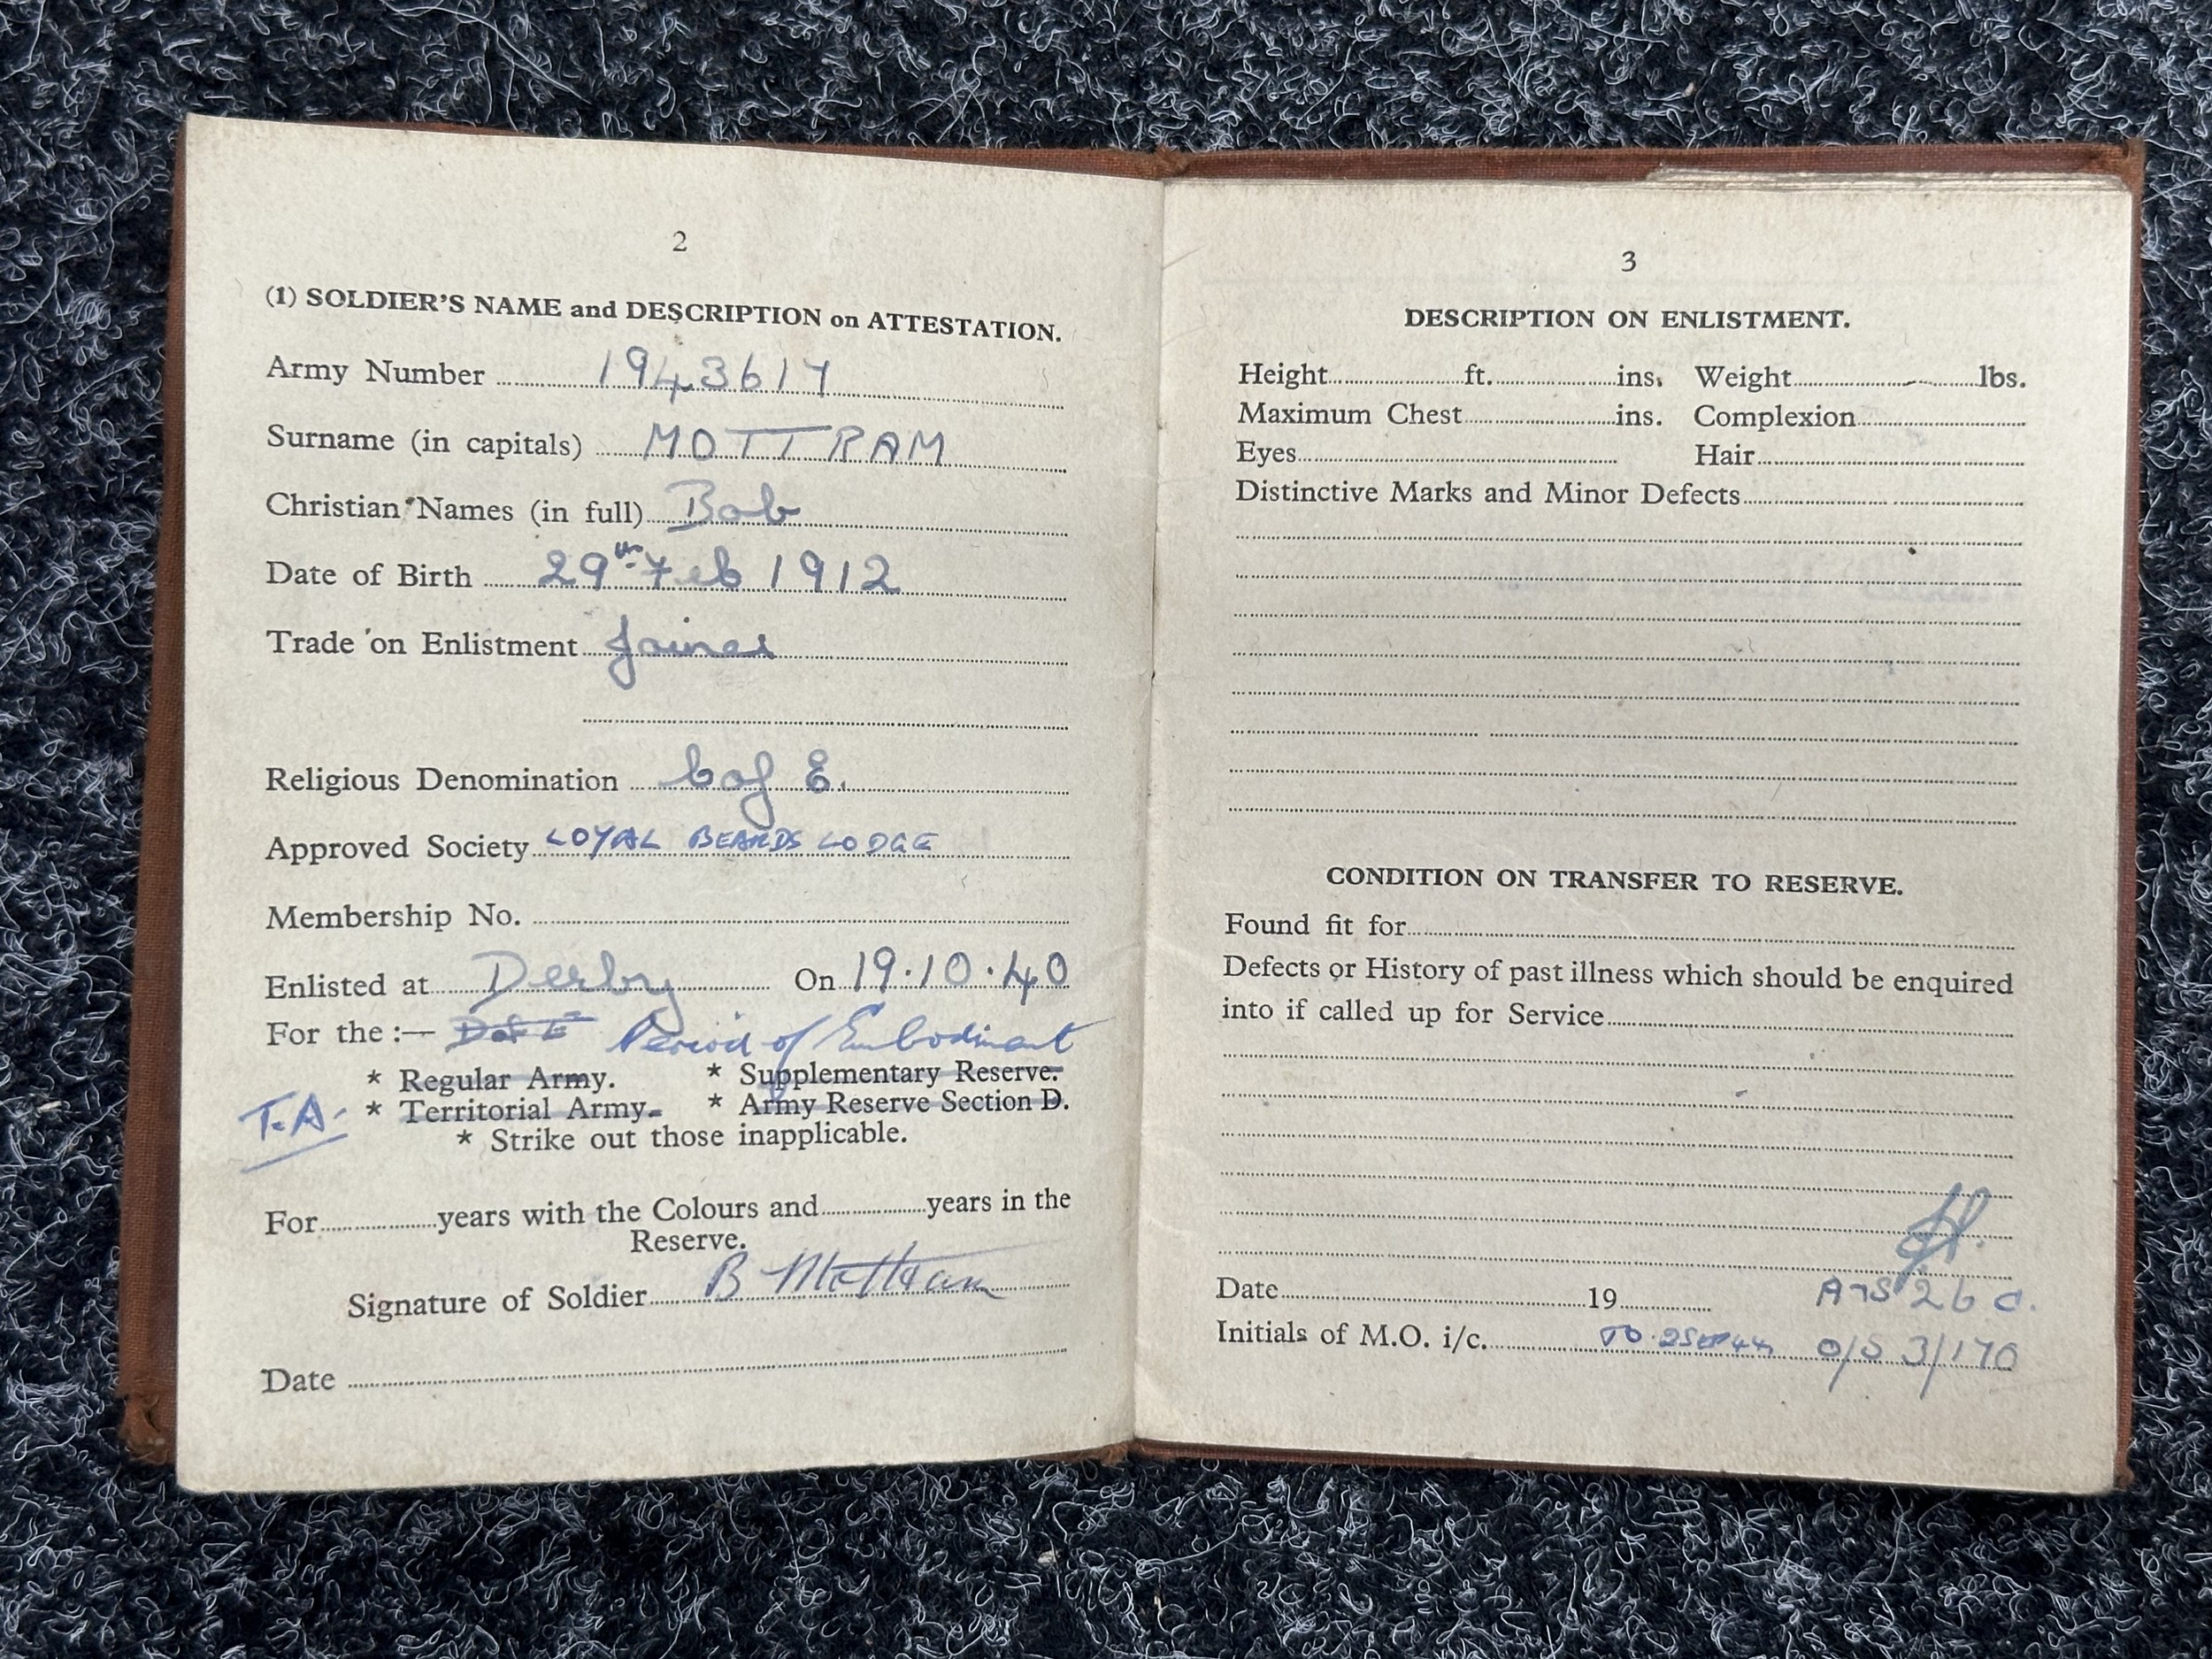 2
(1) SOLDIER'S NAME and DESCRIPTION on ATTESTATION.
Army Number 1943617
Surname (in capitals) MOTTRAM
Christian Names (in full) Bob
Date of Birth 29th Feb 1912
Trade on Enlistment
Religious Denomination C of E.
Approved Society LOYAL BEARDS LODGE
Membership No.
Enlisted at Derby On 19.10.40
For the :— Period of Embodiment
* Regular Army. * Supplementary Reserve.
T.A. * Territorial Army. * Army Reserve Section D.
* Strike out those inapplicable.
For years with the Colours and years in the
Reserve.
Signature of Soldier B Mottram
Date
3
DESCRIPTION ON ENLISTMENT.
Height ft. ins. Weight lbs.
Maximum Chest ins. Complexion
Eyes Hair
Distinctive Marks and Minor Defects
CONDITION ON TRANSFER TO RESERVE.
Found fit for
Defects or History of past illness which should be enquired
into if called up for Service
Date 19
Initials of M.O. i/c. TO 2 SEP 44 O/S 3/170